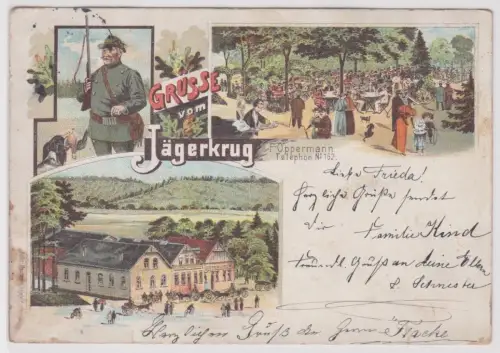 GRÜSSE
vom
Jägerkrug
F. Oppermann
Telephon No 162.
Liebe Frieda!
Herzliche Grüße sendet
Dir
Familie Kind
Freundl. Gruß an deine Eltern
u. Schwester
Herzlichen Gruß der